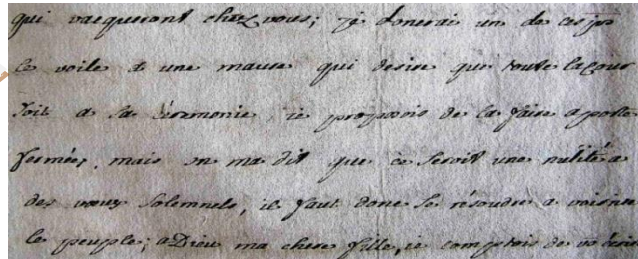 qui vacqueront chez vous; je donerai un de ces jrs
le voile a une mause qui desire que toute la cour
soit a la ceremonie, je proposois de la faire a porte
fermée, mais on ma dit que ce seroit une nulité a
des vœux solemnels, il faut donc se résoudre a voir
le peuple; aDieu ma chere fille, je comptois de vo